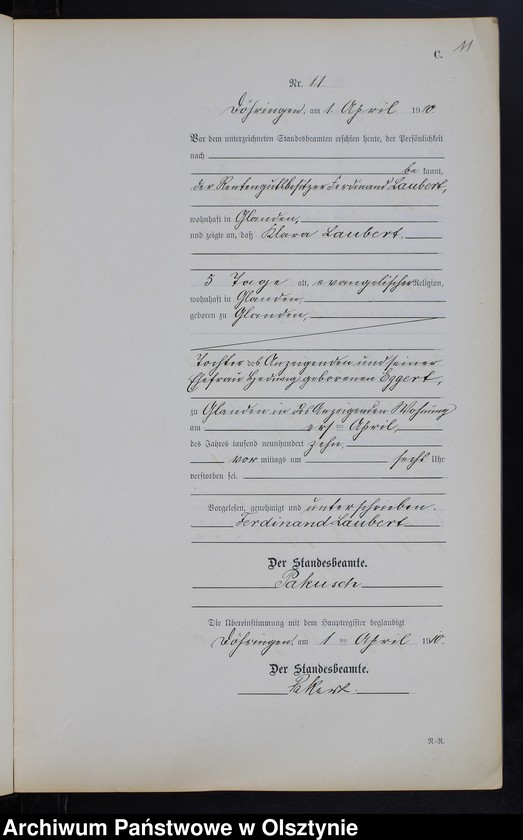 11
C.
Nr. 11
Döhringen, am 1. April 1910.
Vor dem unterzeichneten Standesbeamten erschien heute, der Persönlichkeit
nach
be kannt,
der Rentengutsbesitzer Ferdinand Laubert,
wohnhaft in Glanden,
und zeigte an, daß Klara Laubert,
5 Tage alt, evangelischer Religion,
wohnhaft in Glanden,
geboren zu Glanden,
Tochter des Anzeigenden und seiner
Ehefrau Hedwig geborenen Eggert,
zu Glanden in des Anzeigenden Wohnung
am ersten April,
des Jahres tausend neunhundert zehn,
vor mittags um sechs Uhr
verstorben sei.
Vorgelesen, genehmigt und unterschrieben.
Ferdinand Laubert
Der Standesbeamte.
Pakusch
Die Übereinstimmung mit dem Hauptregister beglaubigt
Döhringen, am 1ten April 1910.
Der Standesbeamte.
N.-R.
Archiwum Państwowe w Olsztynie